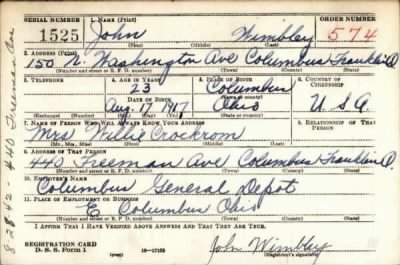 SERIAL NUMBER 1. NAME (Print) ORDER NUMBER
1525 John Wimbley 574
(First) (Middle) (Last)
2. ADDRESS (Print)
150 N. Washington Ave Columbus Franklin O.
(Number and street or R. F. D. number) (Town) (County) (State)
3. TELEPHONE 4. AGE IN YEARS 5. PLACE OF BIRTH 6. COUNTRY OF CITIZENSHIP
23 Columbus
DATE OF BIRTH (Town or county)
Aug. 17 1917 Ohio U S A
(Exchange) (No.) (Mo.) (Day) (Yr.) (State or country)
7. NAME OF PERSON WHO WILL ALWAYS KNOW YOUR ADDRESS 8. RELATIONSHIP OF THAT PERSON
Mrs. Willie Crockrom
(Mr., Mrs., Miss) (First) (Middle) (Last)
9. ADDRESS OF THAT PERSON
440 Freeman Ave Columbus Franklin O.
(Number and street or R. F. D. number) (Town) (County) (State)
10. EMPLOYER'S NAME
Columbus General Depot
11. PLACE OF EMPLOYMENT OR BUSINESS
E Columbus Ohio
(Number and street or R. F. D. number) (Town) (County) (State)
I AFFIRM THAT I HAVE VERIFIED ABOVE ANSWERS AND THAT THEY ARE TRUE.
REGISTRATION CARD
D. S. S. Form 1 (over) 16-17105 John Wimbley
(Registrant's signature)
8-28-42-440 Freeman Ave